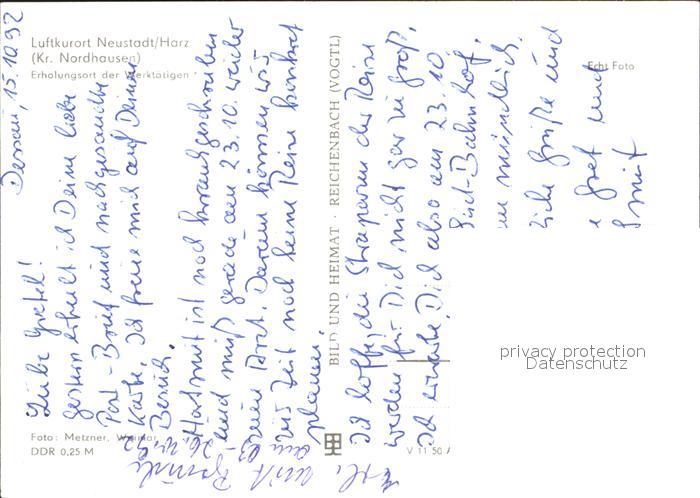 Luftkurort Neustadt/Harz
(Kr. Nordhausen)
Erholungsort der Werktätigen
Echt Foto
BILD UND HEIMAT · REICHENBACH (VOGTL)
Foto: Metzner, Weimar
DDR 0,25 M
V 11 50
privacy protection
Datenschutz
Dessau, 15.10.92
Liebe Gretel!
gestern erhielt ich Deine liebe
Post - Brief und nachgesandte
Karte. Ich freue mich auf Deinen
Besuch.
Hartmut ist noch krankgeschrieben
und muß gerade am 23.10. wieder
zum Arzt. Darum können wir
zur Zeit noch keine Reise konkret
planen.
Ich hoffe, die Strapazen der Reise
werden für Dich nicht gar zu groß.
Ich erwarte Dich also am 23.10
Süd-Bahnhof.
mündlich.
Grüße und
Gret und